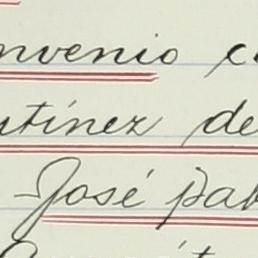 nvenio c
utínez de
-José pab